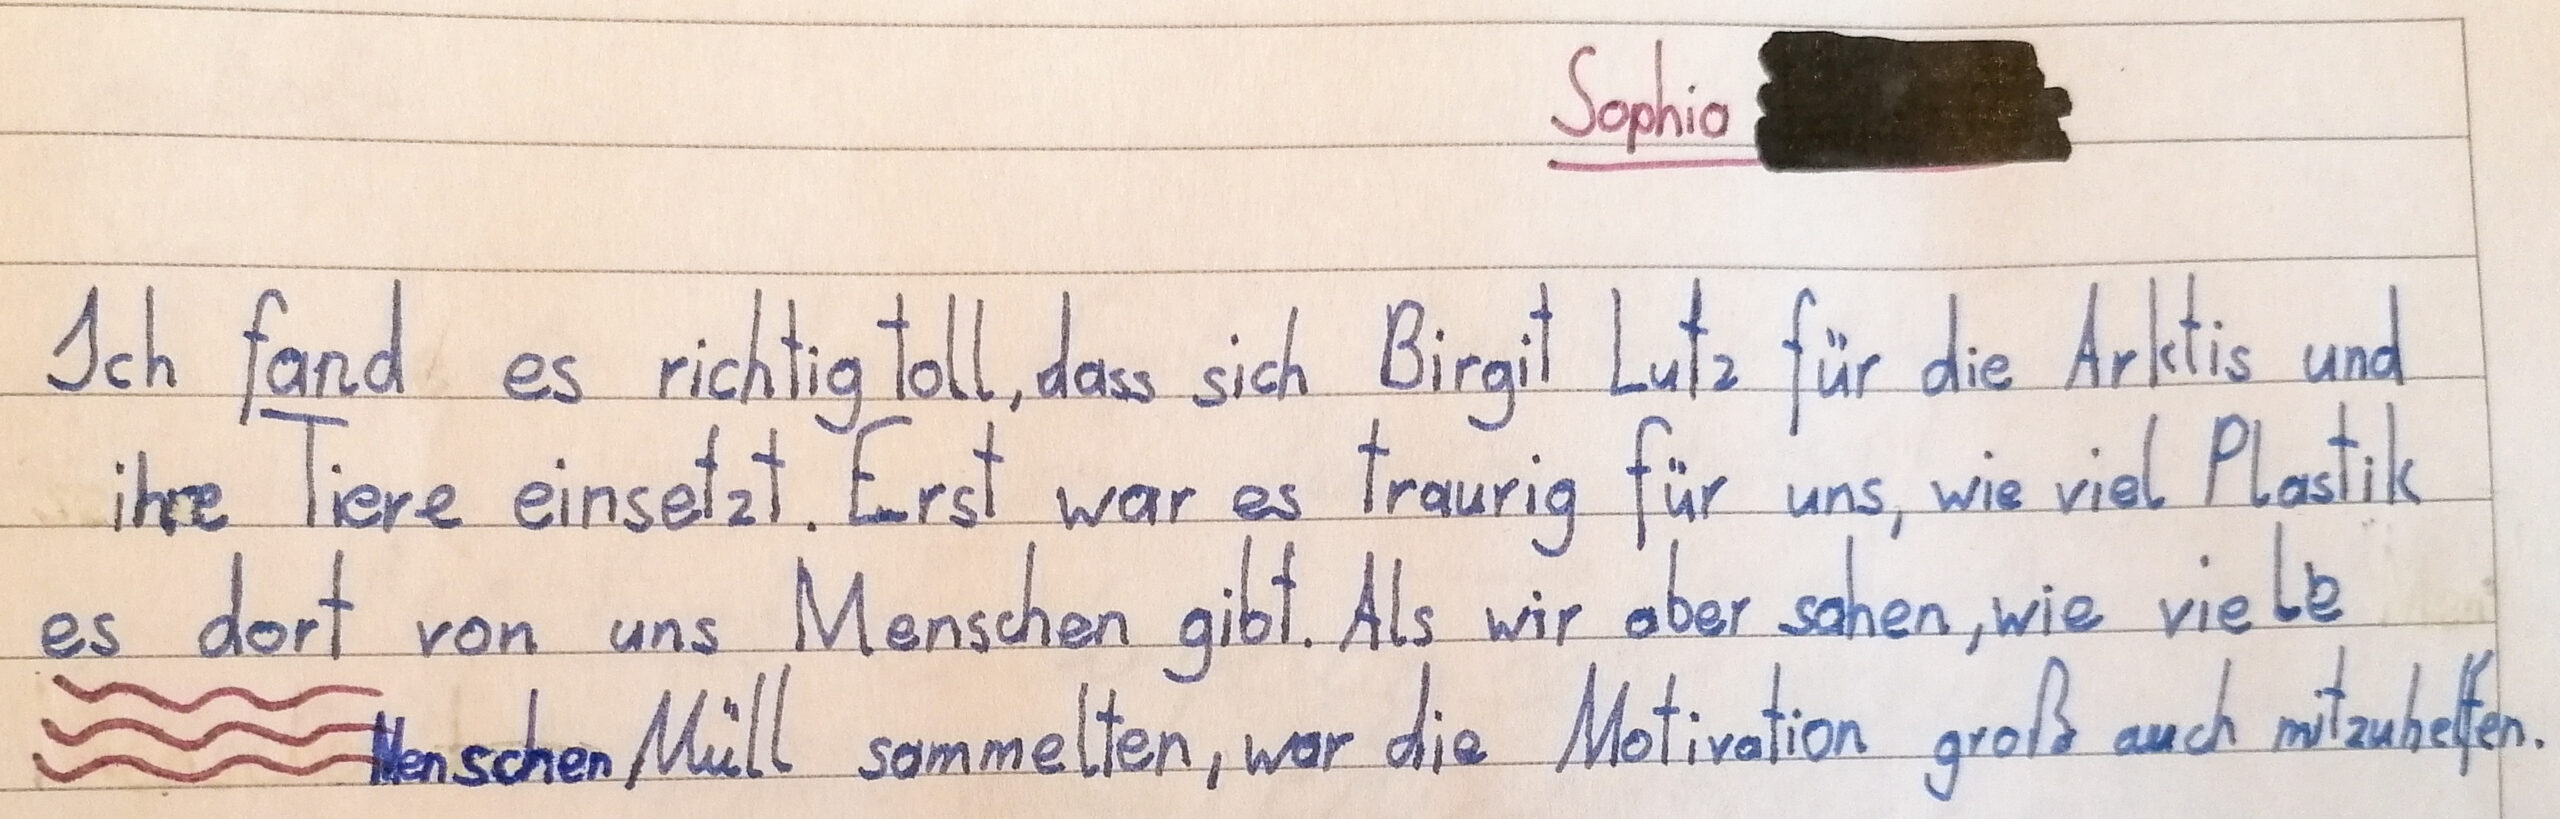 Sophia
Ich fand es richtig toll, dass sich Birgit Lutz für die Arktis und
ihre Tiere einsetzt. Erst war es traurig für uns, wie viel Plastik
es dort von uns Menschen gibt. Als wir aber sahen, wie viele
Menschen Müll sammelten, war die Motivation groß auch mitzuhelfen.